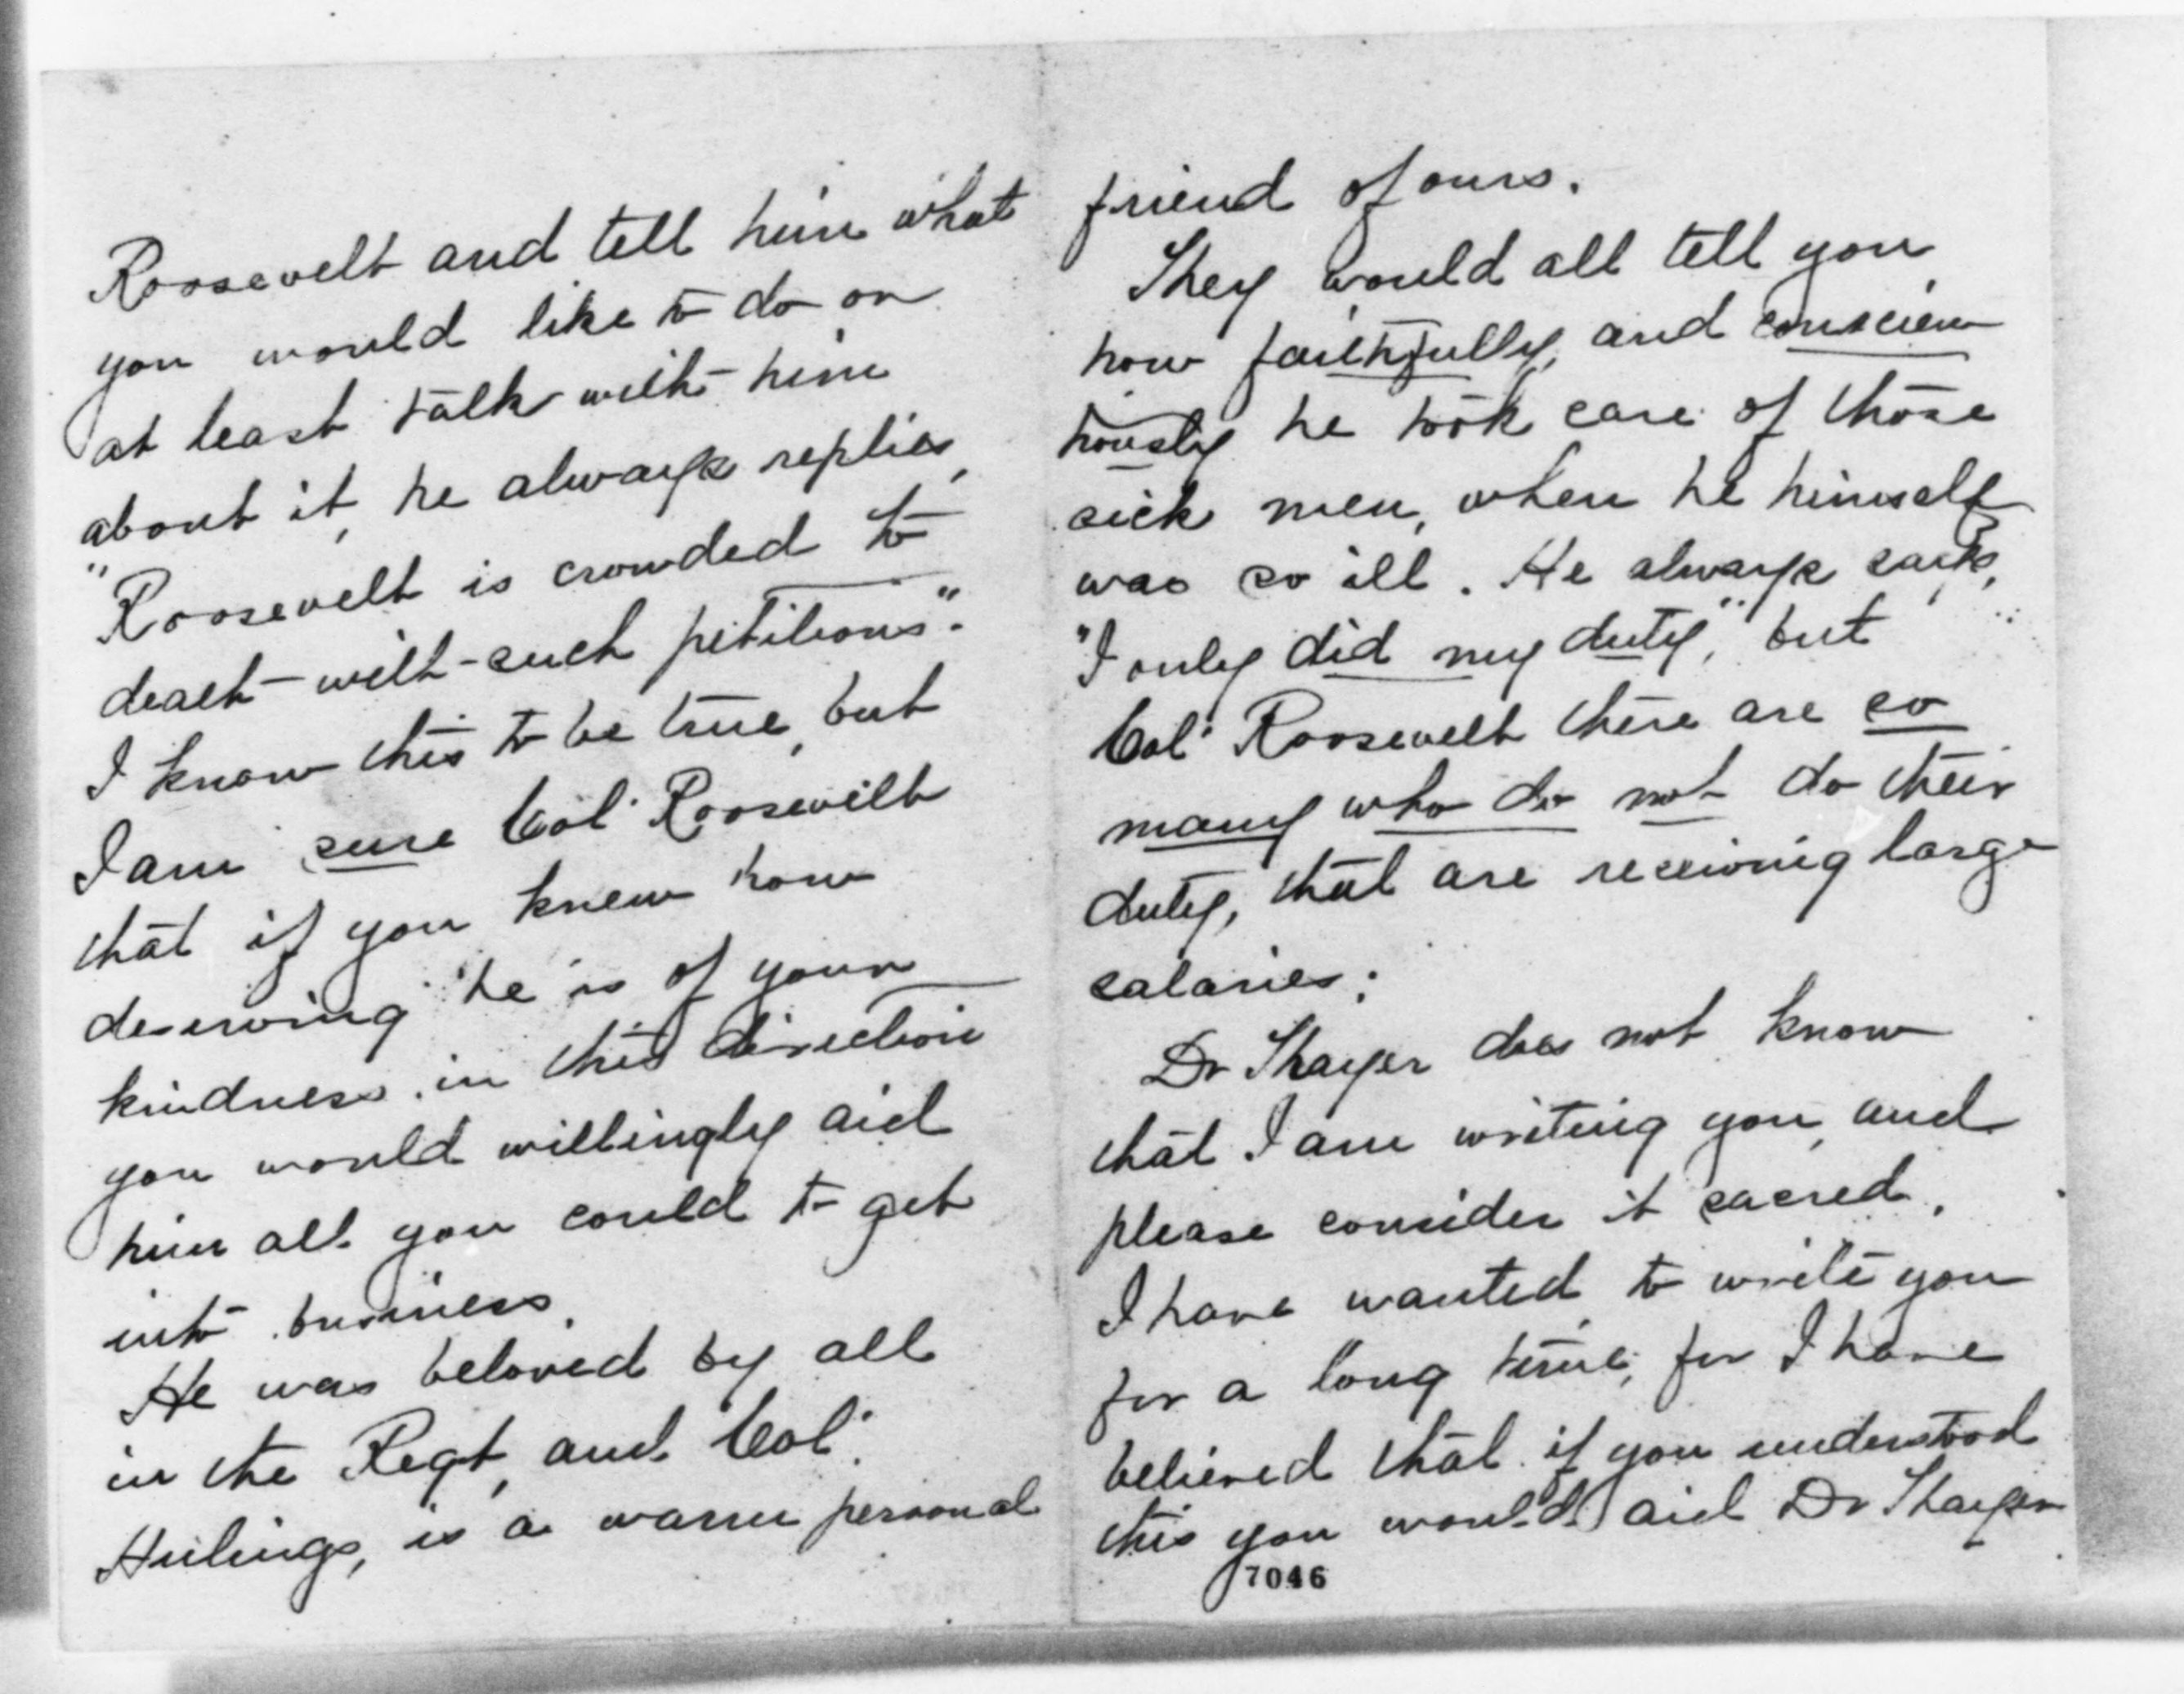 Roosevelt and tell him what
you would like to do or
at least talk with him
about it, he always replies,
"Roosevelt is crowded to
death with such petitions".
I know this to be true, but
I am sure Col' Roosevelt
that if you knew how
deserving he is of your
kindness in this direction
you would willingly aid
him all you could to get
into business.
He was beloved by all
in the Regt, and Col'.
Hulings, is a warm personal
friend of ours.
They would all tell you
how faithfully, and conscien
tiously he took care of those
sick men, when he himself
was so ill. He always says,
"I only did my duty", but
Col' Roosevelt there are so
many who do not do their
duty, that are receiving large
salaries;
Dr Thayer does not know
that I am writing you, and
please consider it sacred.
I have wanted to write you
for a long time, for I have
believed that if you understood
this you would aid Dr Thayer
7046